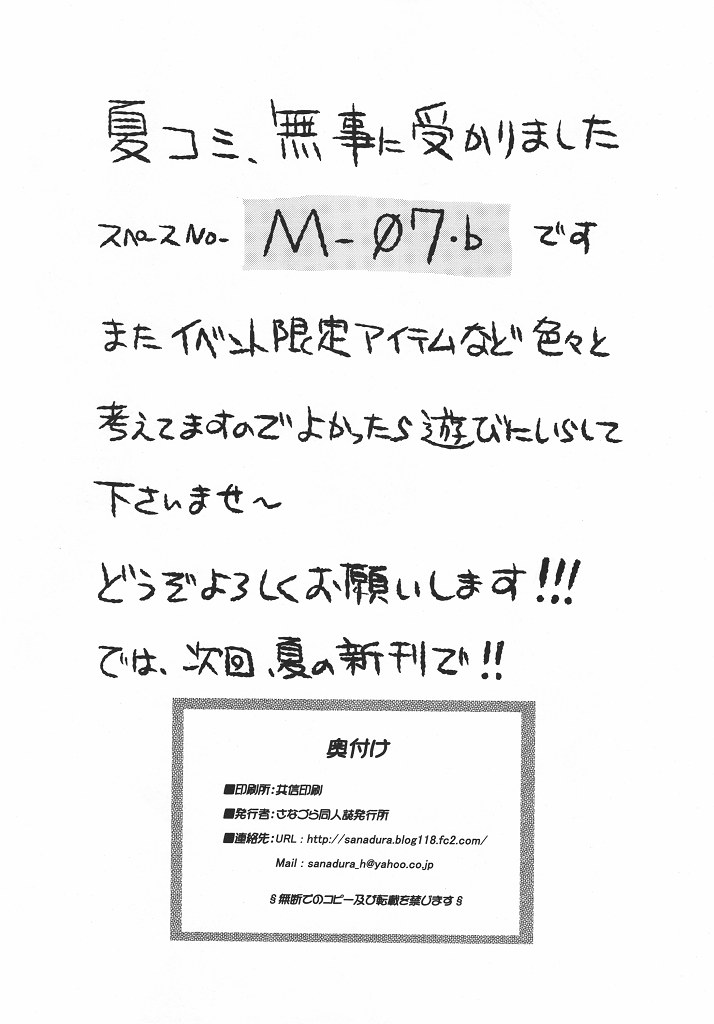 夏コミ、無事に受かりました
スペースNo- M-07.b です
また イベント限定アイテムなど色々と
考えてますのでよかったら遊びにいらして
下さいませ〜
どうぞよろしくお願いします!!!
では、次回、夏の新刊で!!
奥付け
■印刷所：共信印刷
■発行者：さなづら同人誌発行所
■連絡先：URL : http://sanadura.blog118.fc2.com/
Mail : sanadura_h@yahoo.co.jp
§無断でのコピー及び転載を禁じます§